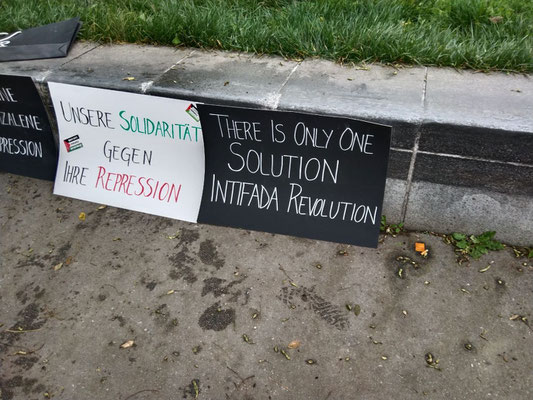 UNSERE SOLIDARITÄT
GEGEN
IHRE REPRESSION
THERE IS ONLY ONE
SOLUTION
INTIFADA REVOLUTION